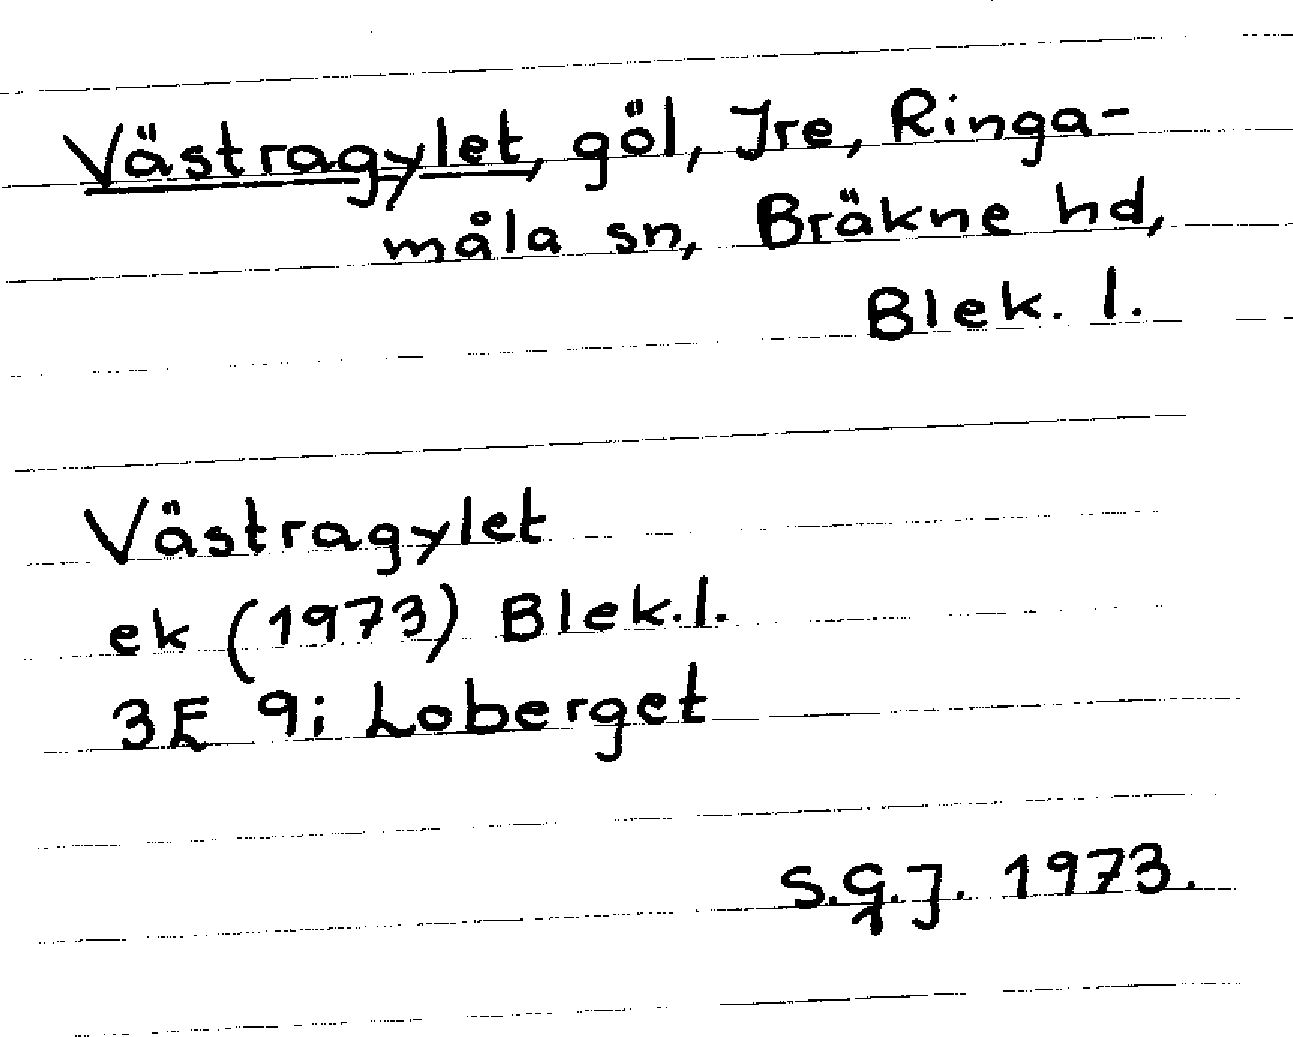 Västragylet, göl, Ire, Ringa-
måla sn, Bräkne hd,
Blek. l.
Västragylet
ek (1973) Blek. l.
3E 9i Loberget
S.G.J. 1973.